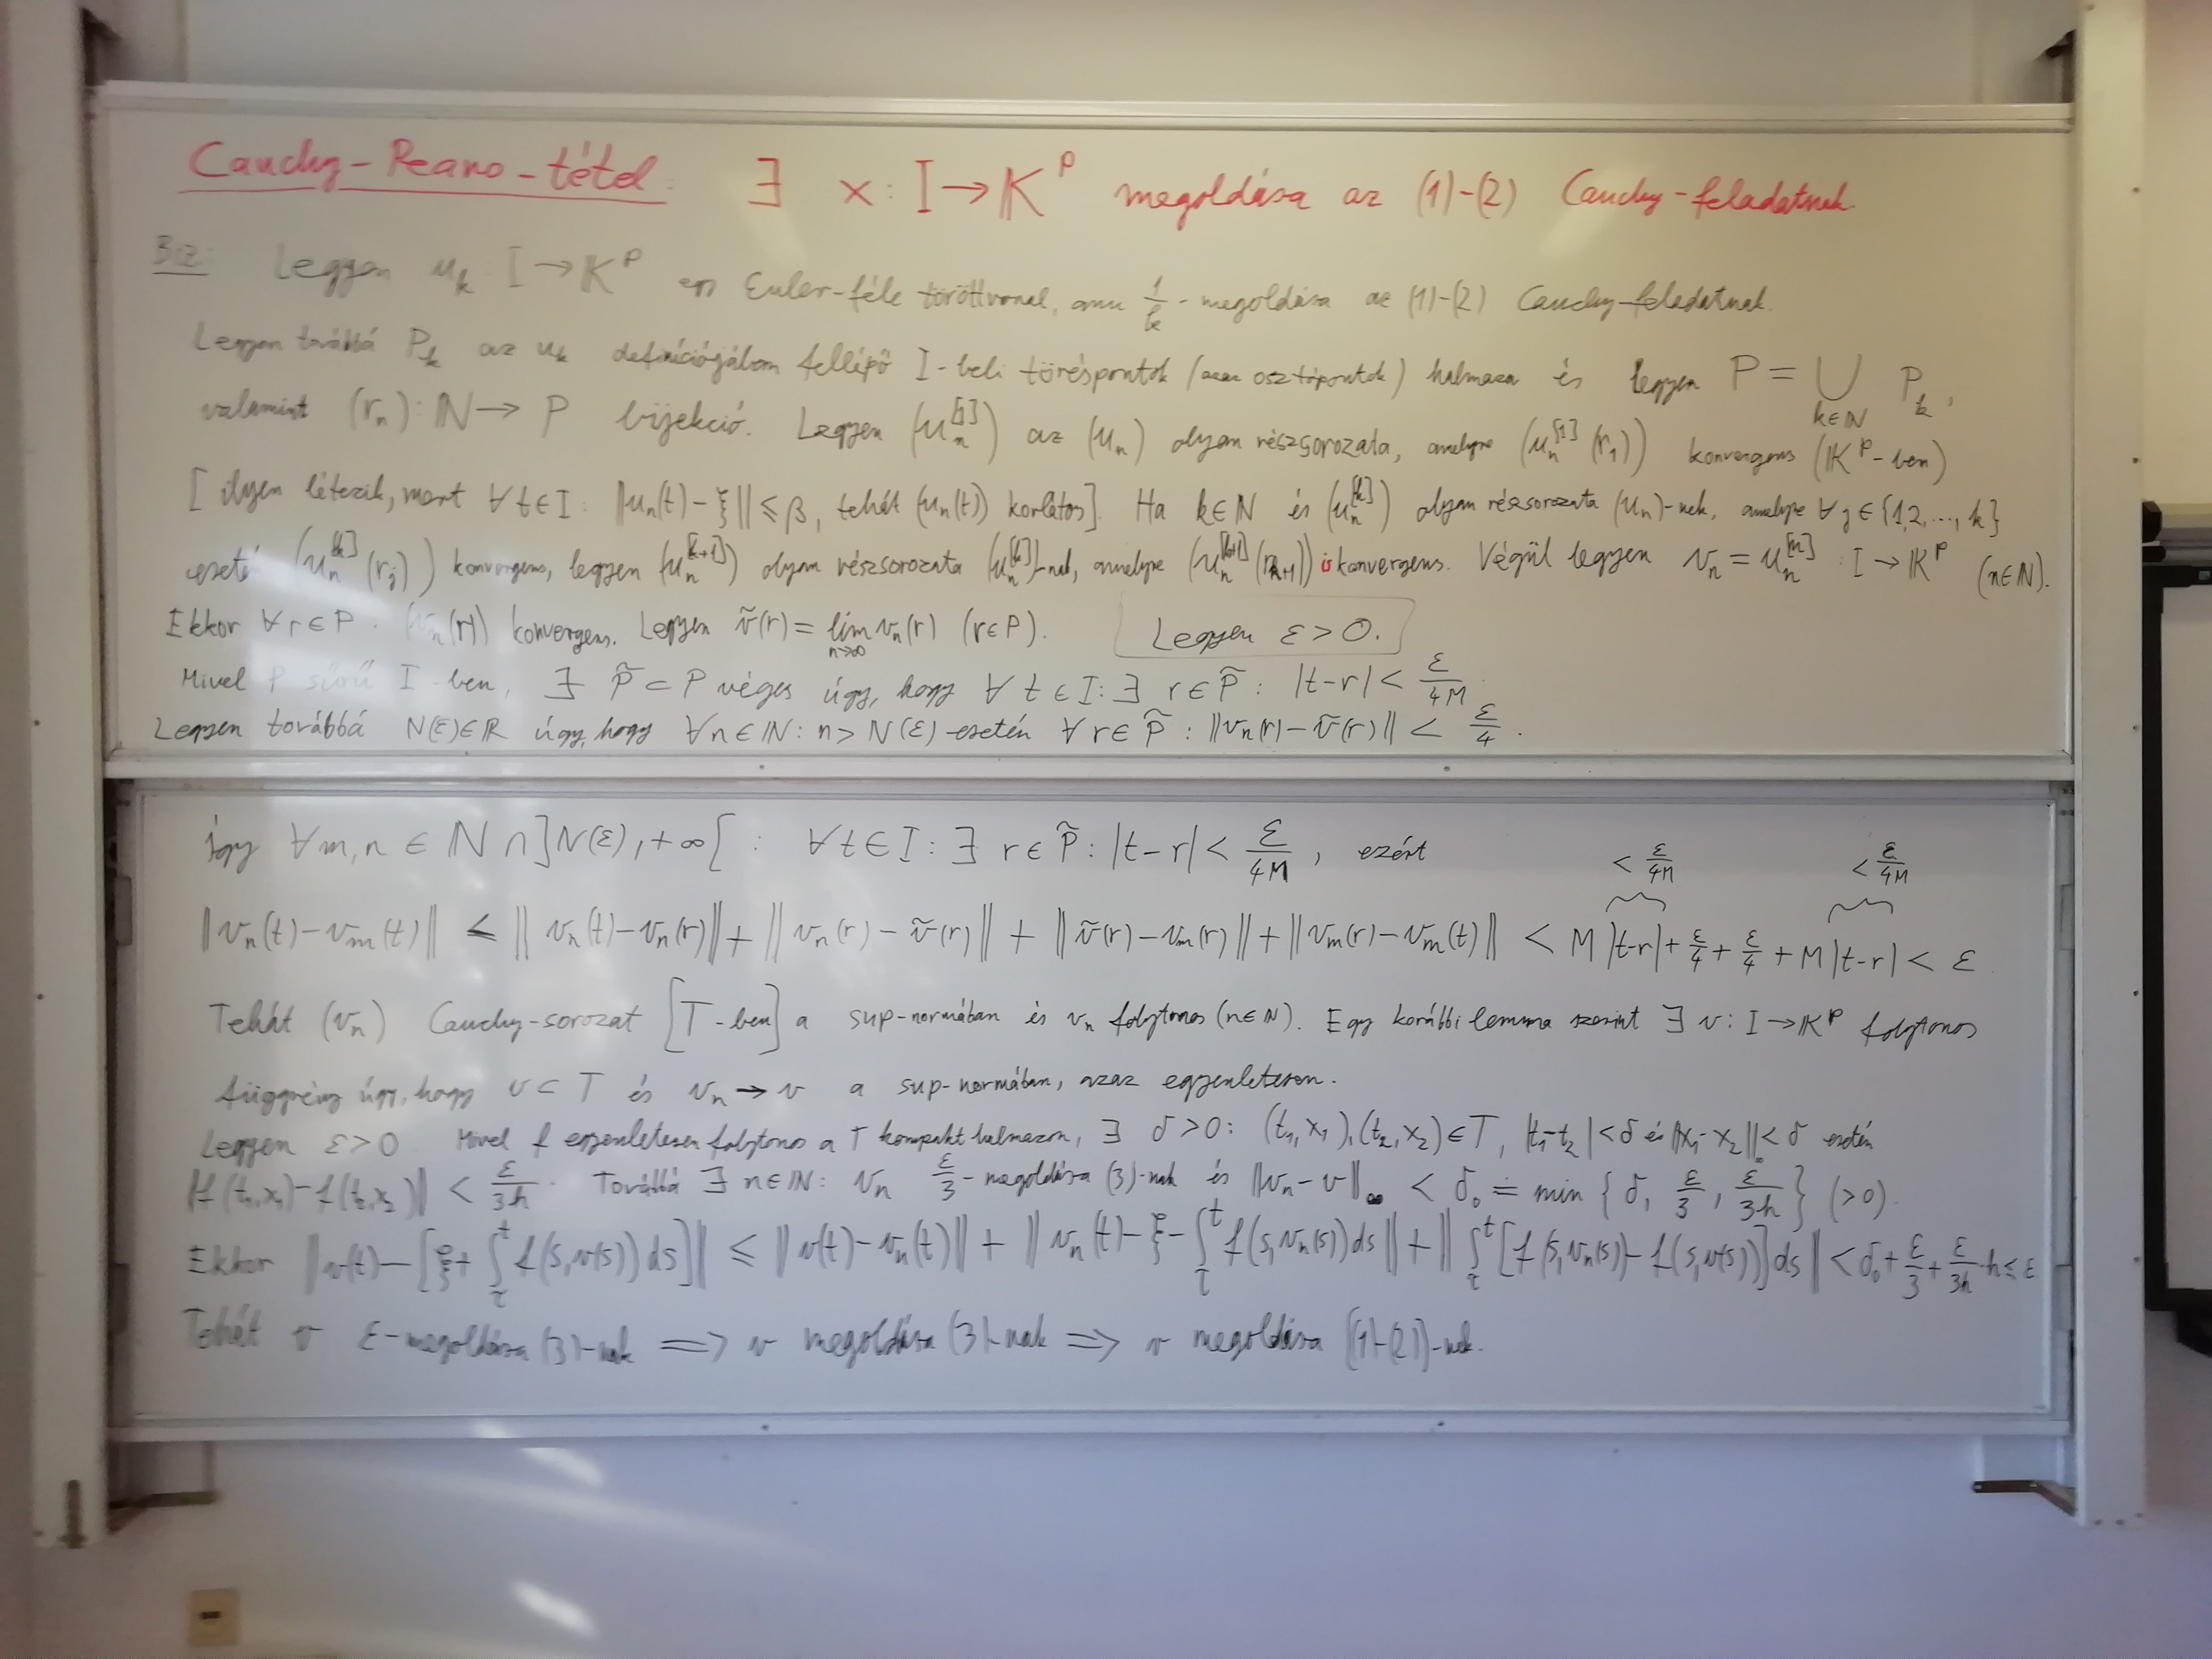 Cauchy-Peano-tétel: ∃ x: I → K^p megoldása az (1)-(2) Cauchy-feladatnak.
Biz: Legyen u_k: I → K^p egy Euler-féle töröttvonal, ami 1/k - megoldása az (1)-(2) Cauchy-feladatnak.
Legyen továbbá P_k az u_k definíciójában fellépő I-beli töréspontok (azaz osztópontok) halmaza és legyen P = ∪_{k∈N} P_k,
valamint (r_n): N → P bijekció. Legyen (u_n^[1]) az (u_n) olyan részsorozata, amelyre (u_n^[1](r_1)) konvergens (K^p-ben)
[ilyen létezik, mert ∀t∈I: ||u_n(t) - ξ|| ≤ β, tehát (u_n(t)) korlátos]. Ha k∈N és (u_n^[k]) olyan részsorozata (u_n)-nek, amelyre ∀j∈{1,2,...,k}
esetén (u_n^[k](r_j)) konvergens, legyen (u_n^[k+1]) olyan részsorozata (u_n^[k])-nak, amelyre (u_n^[k+1](r_{k+1})) is konvergens. Végül legyen v_n = u_n^[n]: I → K^p (n∈N).
Ekkor ∀r∈P: (v_n(r)) konvergens. Legyen ṽ(r) = lim_{n→∞} v_n(r) (r∈P). Legyen ε > 0.
Mivel P sűrű I-ben, ∃ P̃ ⊂ P véges úgy, hogy ∀t∈I: ∃ r∈P̃: |t-r| < ε/4M
Legyen továbbá N(ε)∈R úgy, hogy ∀n∈N: n > N(ε) esetén ∀r∈P̃: ||v_n(r) - ṽ(r)|| < ε/4.
Így ∀m,n ∈ N ∩ ]N(ε), +∞[ : ∀t∈I: ∃ r∈P̃: |t-r| < ε/4M, ezért
< ε/4M < ε/4M
||v_n(t) - v_m(t)|| ≤ ||v_n(t) - v_n(r)|| + ||v_n(r) - ṽ(r)|| + ||ṽ(r) - v_m(r)|| + ||v_m(r) - v_m(t)|| < M|t-r| + ε/4 + ε/4 + M|t-r| < ε
Tehát (v_n) Cauchy-sorozat [T-ben] a sup-normában és v_n folytonos (n∈N). Egy korábbi lemma szerint ∃ v: I → K^p folytonos
függvény úgy, hogy v ⊂ T és v_n → v a sup-normában, azaz egyenletesen.
Legyen ε > 0 Mivel f egyenletesen folytonos a T kompakt halmazon, ∃ δ > 0: (t_1, x_1), (t_2, x_2) ∈ T, |t_1 - t_2| < δ és ||x_1 - x_2|| < δ esetén
||f(t_1, x_1) - f(t_2, x_2)|| < ε/3h. Továbbá ∃ n∈N: v_n ε/3 - megoldása (3)-nak és ||v_n - v||_∞ < δ_0 ≐ min {δ, ε/3, ε/3h} (>0).
Ekkor ||v(t) - [ξ + ∫_τ^t f(s, v(s)) ds]|| ≤ ||v(t) - v_n(t)|| + ||v_n(t) - ξ - ∫_τ^t f(s, v_n(s)) ds|| + ||∫_τ^t [f(s, v_n(s)) - f(s, v(s))] ds|| < δ_0 + ε/3 + ε/3h·h ≤ ε
Tehát v ε-megoldása (3)-nak ⟹ v megoldása (3)-nak ⟹ v megoldása ((1)-(2))-nek.